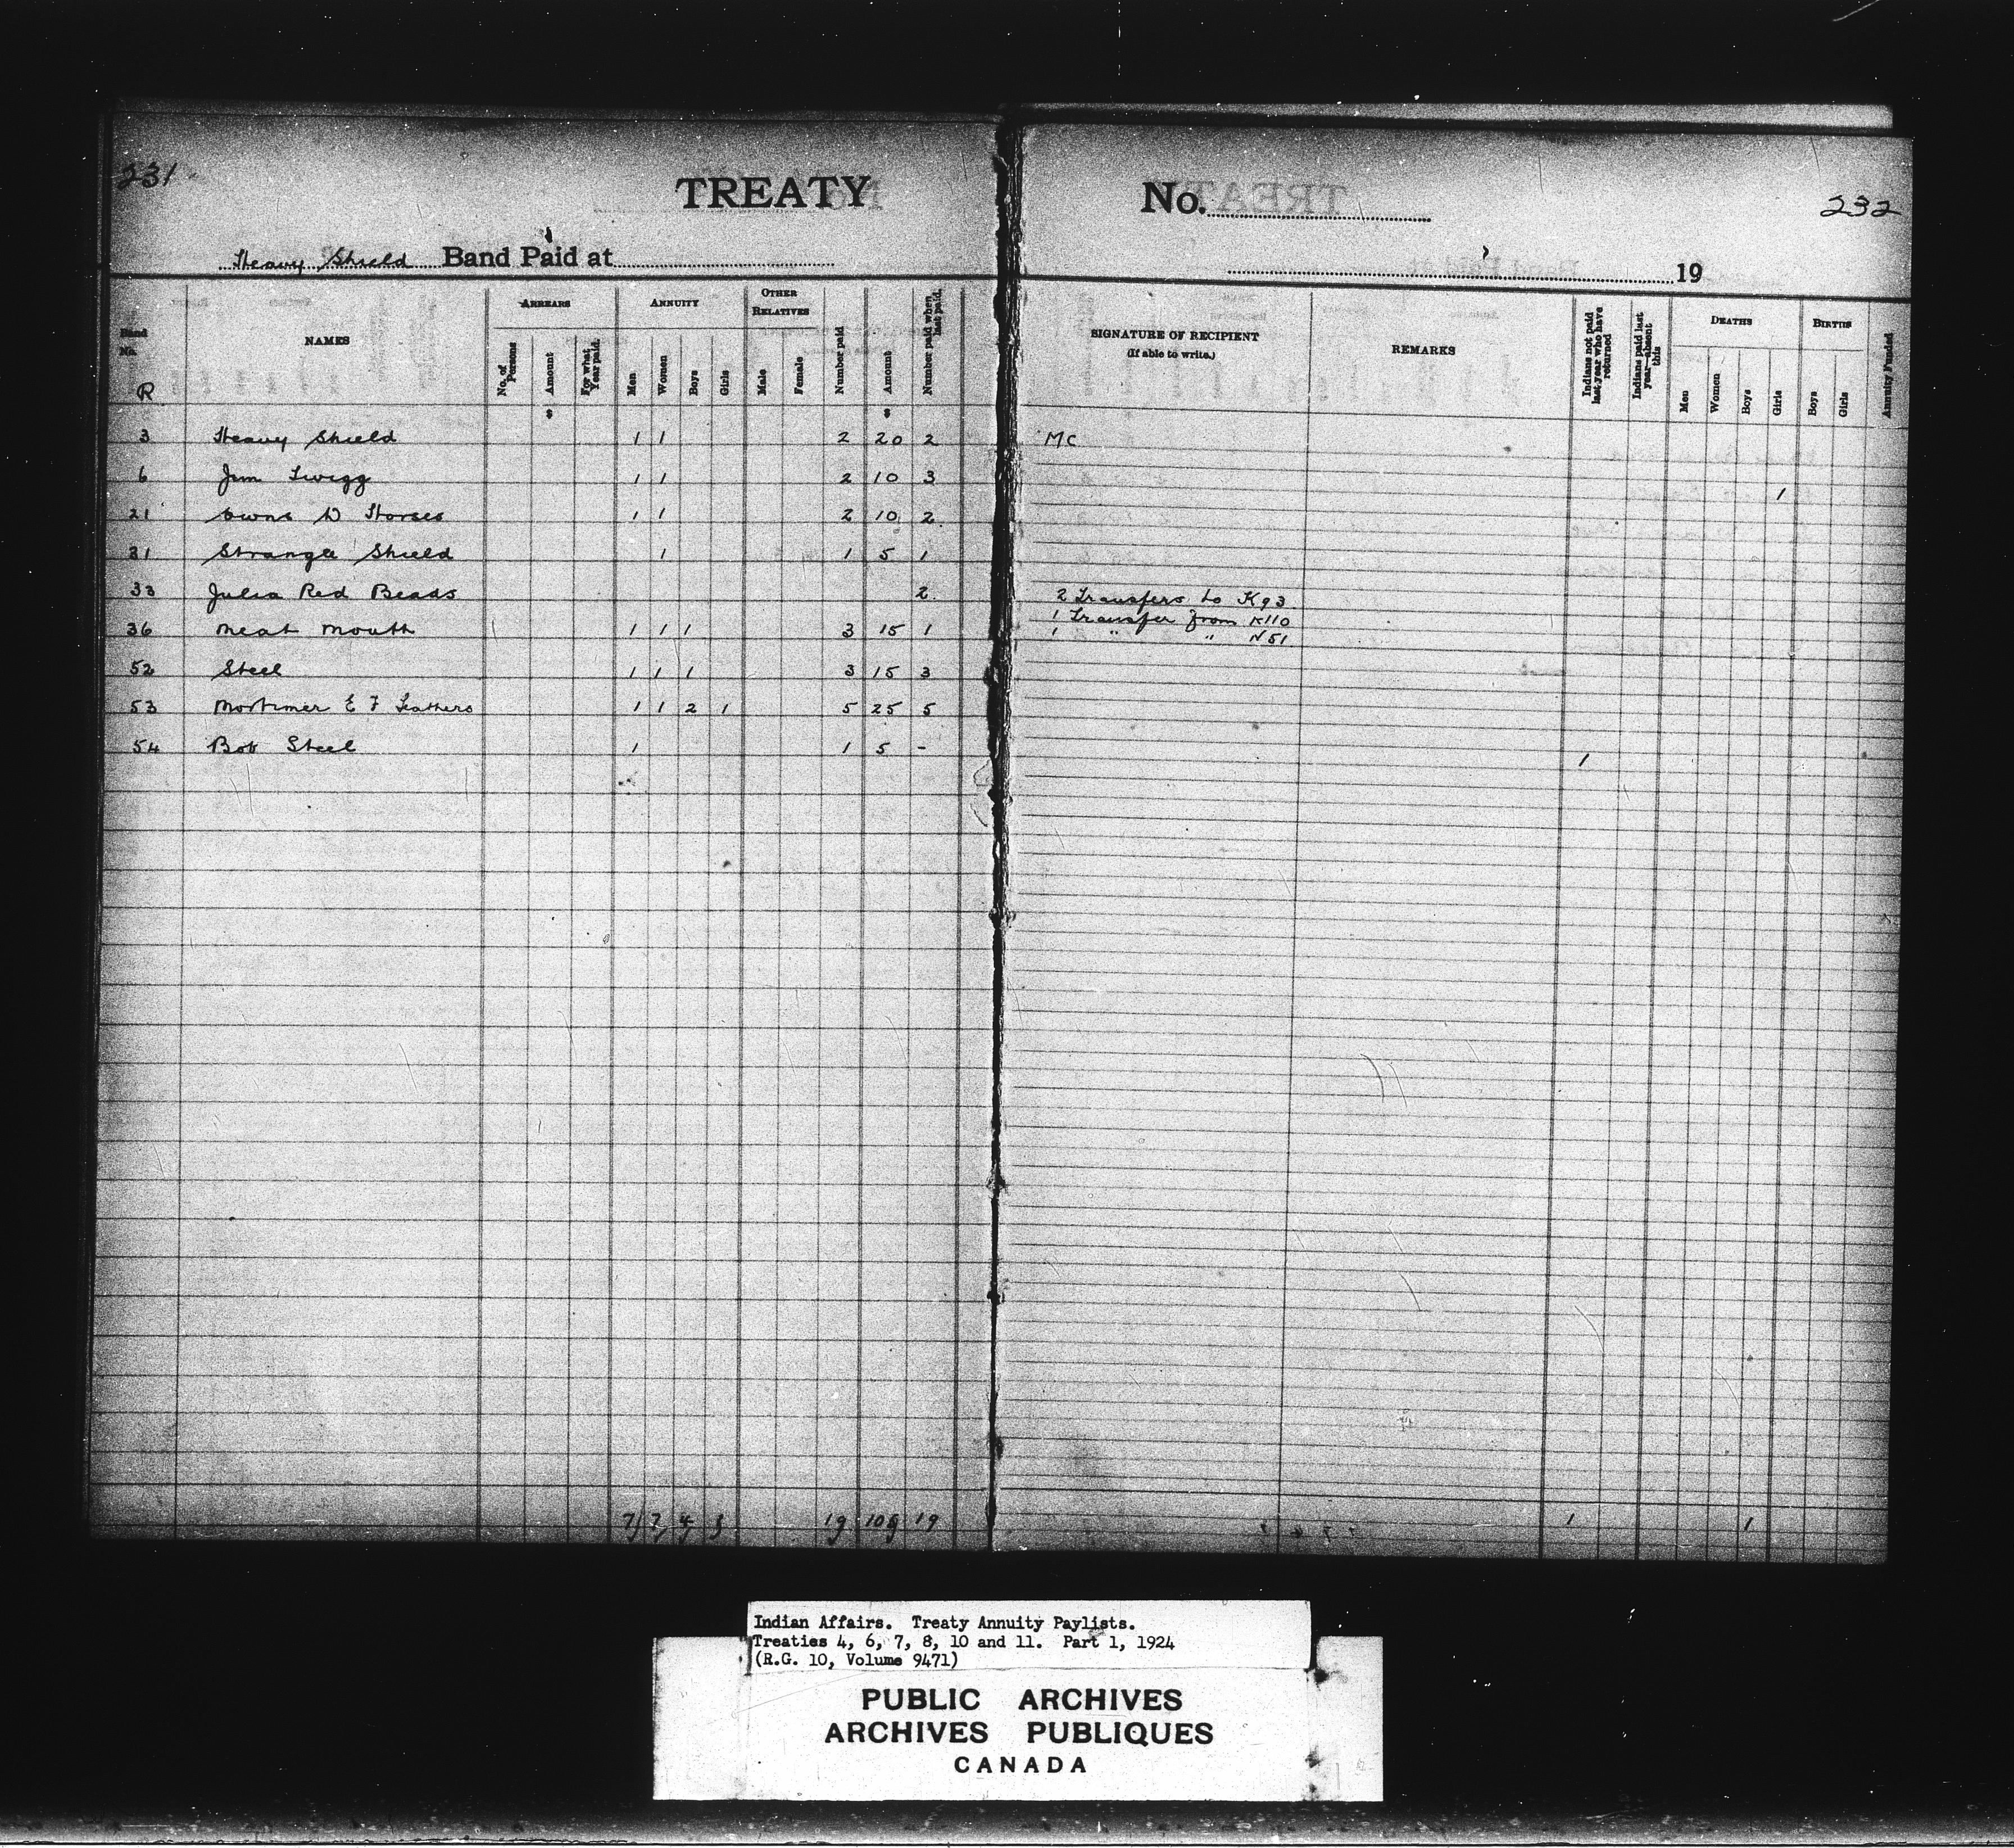 231
TREATY No. 232
Heavy Shield Band Paid at 19
Band No. R NAMES ARREARS No. of Persons Amount $ For what Year paid. ANNUITY Men Women Boys Girls OTHER RELATIVES Male Female Number paid Amount $ Number paid when last paid. SIGNATURE OF RECIPIENT (If able to write.) REMARKS Indians not paid last year who have returned Indians paid last year—absent this DEATHS Men Women Boys Girls BIRTHS Boys Girls Annuity Funded
3 Heavy Shield 1 1 2 20 2 MC
6 Jim Twigg 1 1 2 10 3 1
21 Owns D Horses 1 1 2 10 2
31 Strangle Shield 1 1 5 1
33 Julia Red Beads 2 2 Transfers to K93
36 Meat Mouth 1 1 1 3 15 1 1 Transfer from K110
1 " " N51
52 Steel 1 1 1 3 15 3
53 Mortimer E F Feathers 1 1 2 1 5 25 5
54 Bob Steel 1 1 5 - 1
7 7 4 1 19 105 19 1 1
Indian Affairs. Treaty Annuity Paylists.
Treaties 4, 6, 7, 8, 10 and 11. Part 1, 1924
(R.G. 10, Volume 9471)
PUBLIC ARCHIVES
ARCHIVES PUBLIQUES
CANADA